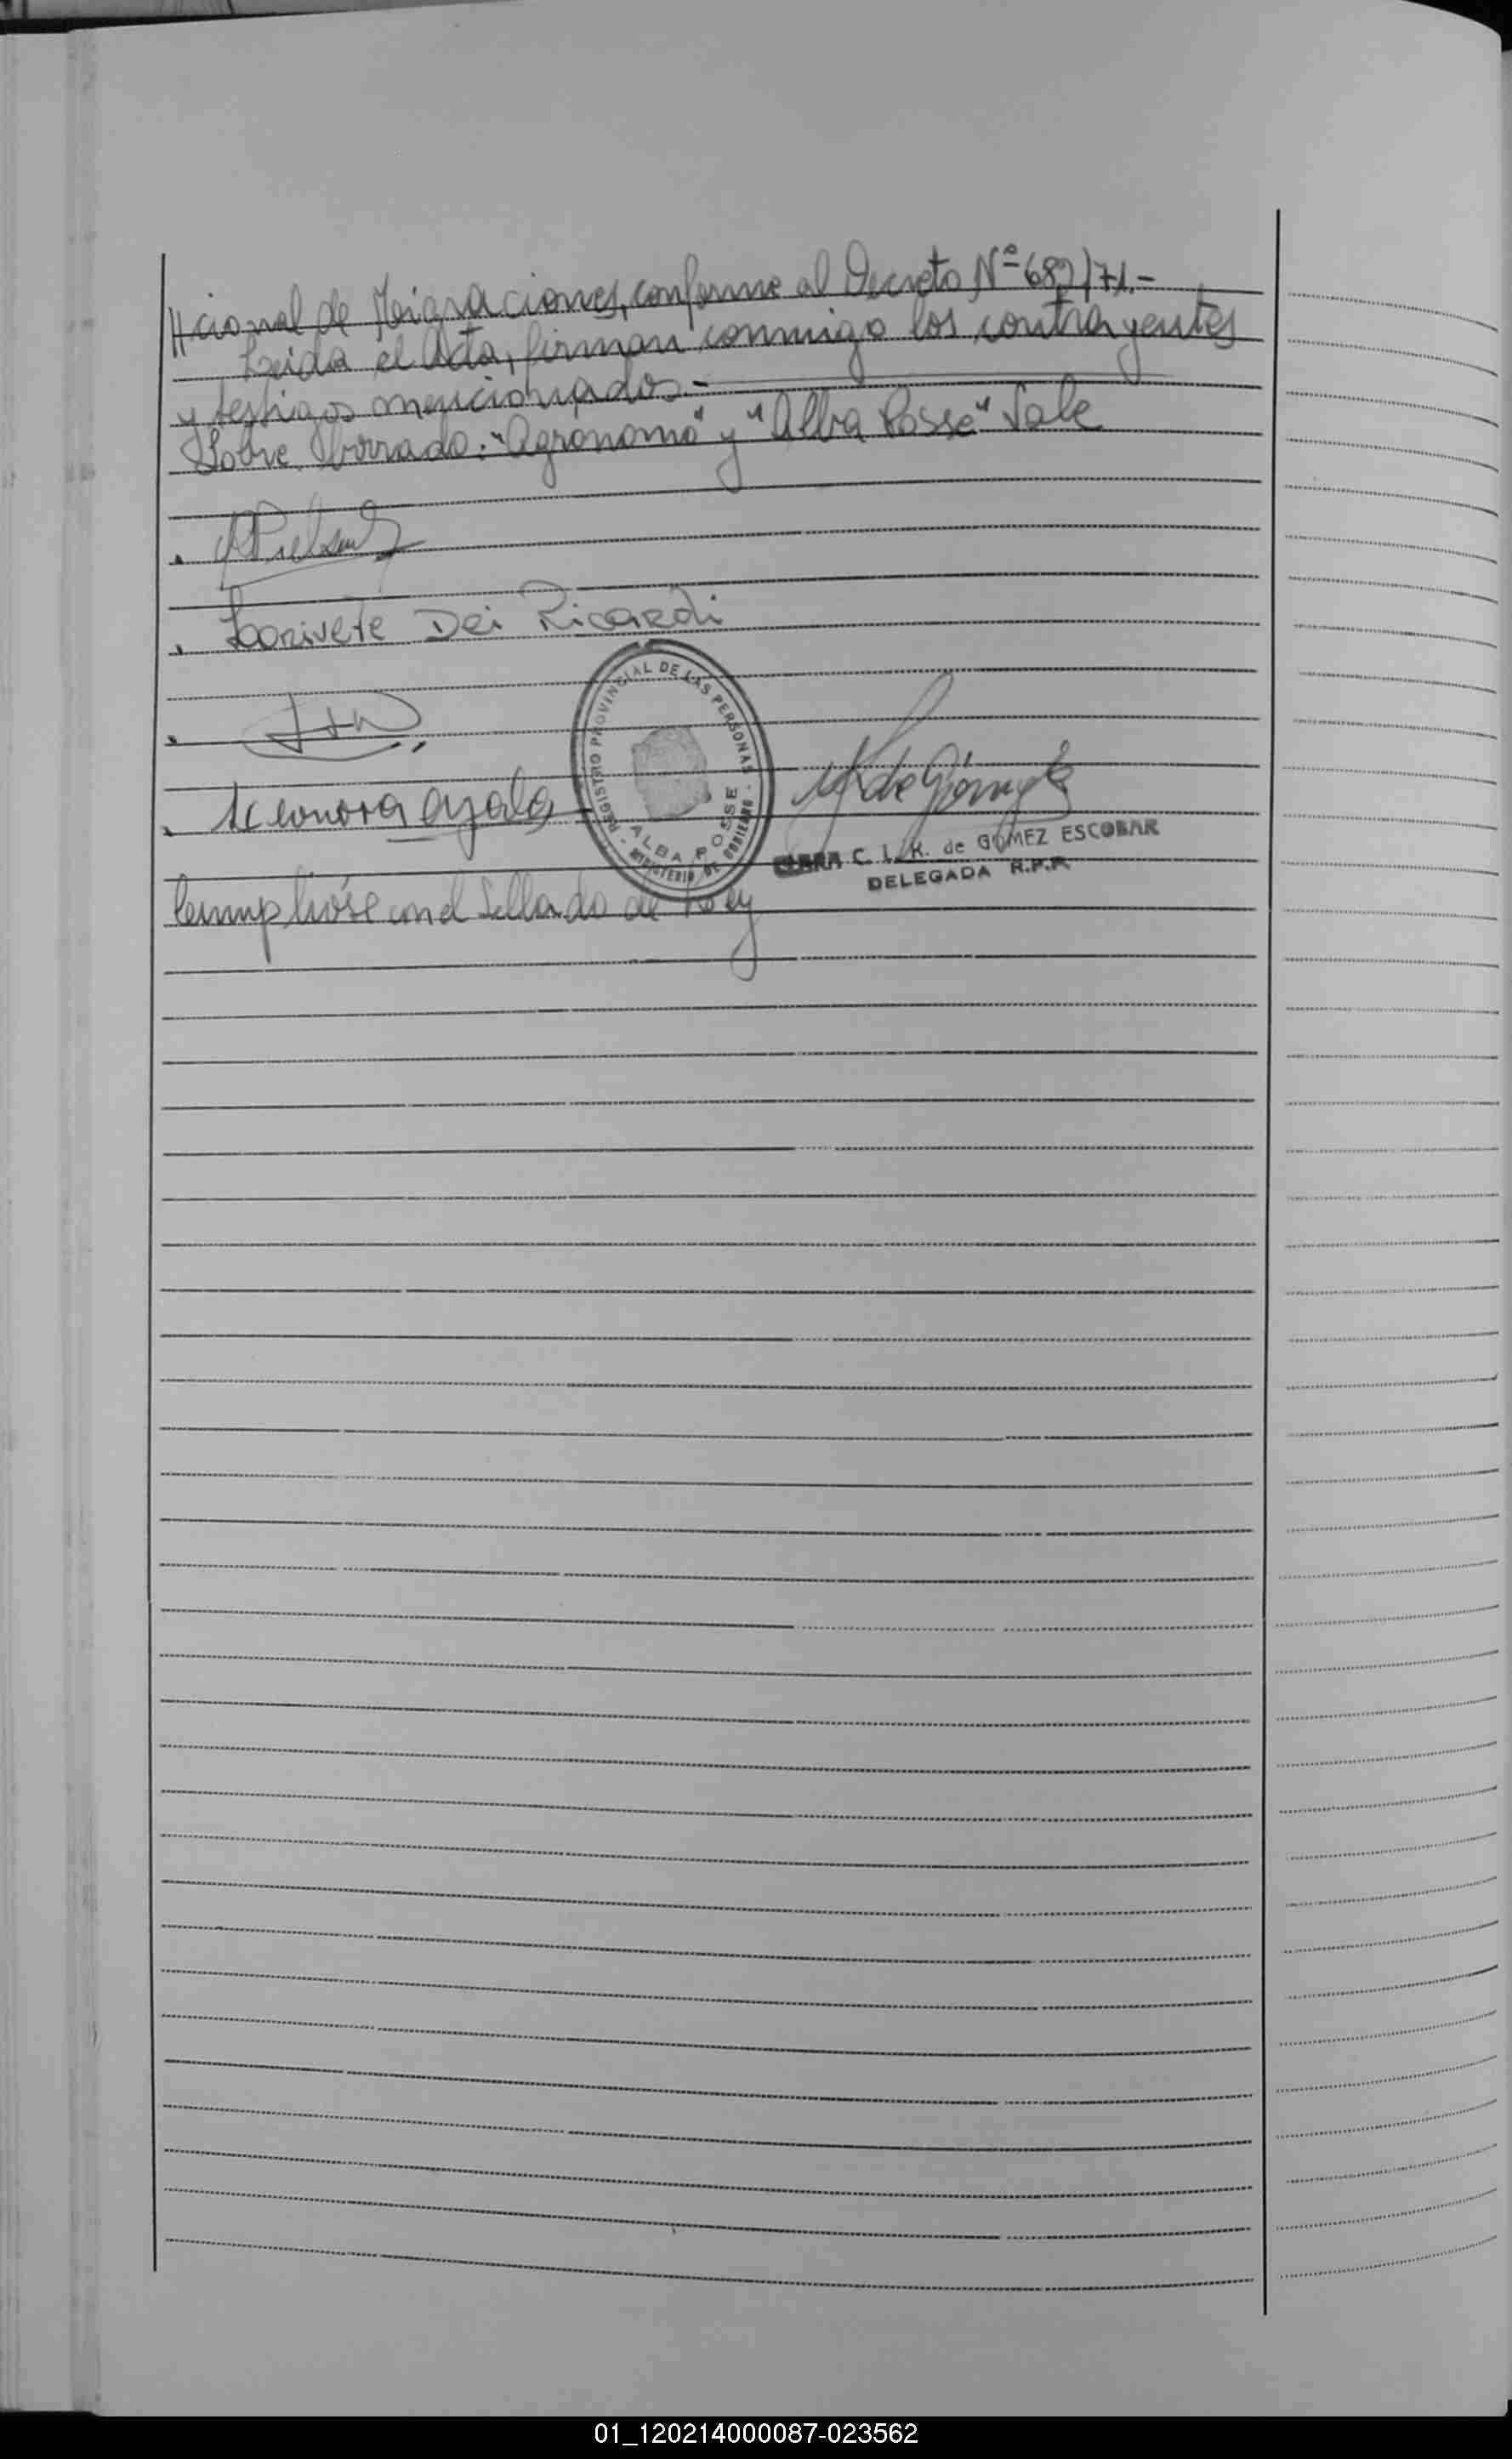 //cional de Migraciones, conforme al Decreto Nº 682/71.-
Leida el Acta, firman conmigo los contrayentes
y testigos mencionados.-
Sobre borrado: "Agronomo" y "Alba Posse" Vale
Lorivete Dei Ricardi
Leonora Ayala
REGISTRO PROVINCIAL DE LAS PERSONAS
ALBA POSSE
- MINISTERIO DE GOBIERNO -
CLARA C. I. K. de GOMEZ ESCOBAR
DELEGADA R.P.P.
Cumplióse con el Sellado de Ley
01_120214000087-023562